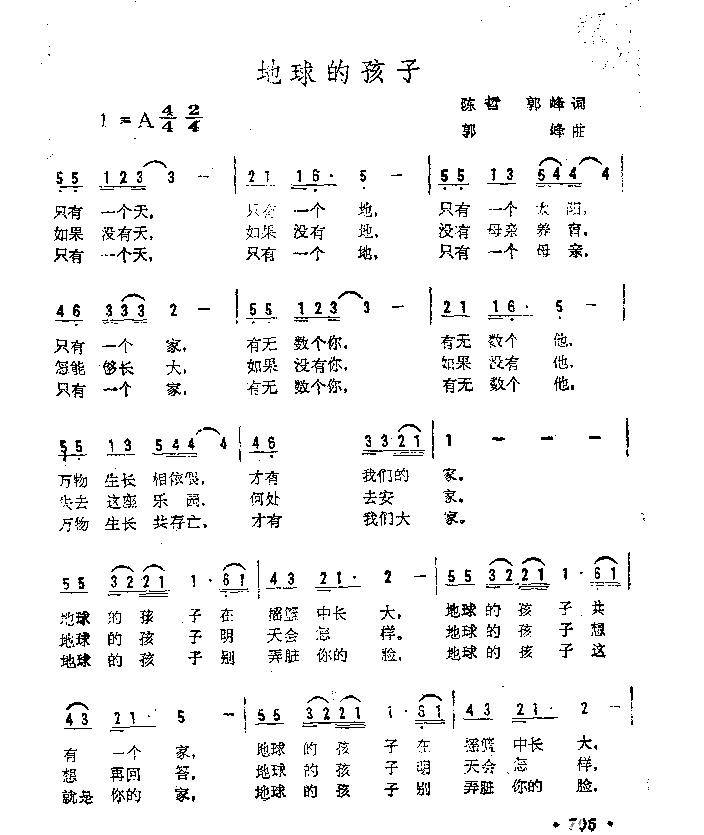 地球的孩子
1 = A 4/4 2/4
陈哲 郭峰词
郭 峰曲
5 5 1 2 3 3 — | 2 1 1 6 · 5 — | 5 5 1 3 5 4 4 4 |
只有 一个天, 只有 一个 地, 只有 一个 太 阳,
如果 没有天, 如果 没有 地, 没有 母亲 养 育,
只有 一个天, 只有 一个 地, 只有 一个 母 亲,
4 6 3 3 3 2 — | 5 5 1 2 3 3 — | 2 1 1 6 · 5 — |
只有 一 个 家, 有无 数个你, 有无 数个 他,
怎能 够长 大, 如果 没有你, 如果 没有 他,
只有 一个 家, 有无 数个你, 有无 数个 他,
5 5 1 3 5 4 4 4 | 4 6 3 3 2 1 | 1 — — — |
万物 生长 相依偎, 才有 我们的 家。
失去 这座 乐 园, 何处 去安 家。
万物 生长 共存亡, 才有 我们大 家。
5 5 3 2 2 1 1 · 6 1 | 4 3 2 1 · 2 — | 5 5 3 2 2 1 1 · 6 1 |
地球 的 孩 子 在 摇篮 中长 大, 地球 的 孩 子 共
地球 的 孩 子 明 天会 怎 样。 地球 的 孩 子 想
地球 的 孩 子 别 弄脏 你的 脸, 地球 的 孩 子 这
4 3 2 1 · 5 — | 5 5 3 2 2 1 1 · 6 1 | 4 3 2 1 · 2 — |
有 一 个 家, 地球 的 孩 子 在 摇篮 中长 大,
想 再回 答, 地球 的 孩 子 明 天会 怎 样,
就是 你的 家, 地球 的 孩 子 别 弄脏 你的 脸,
· 705 ·